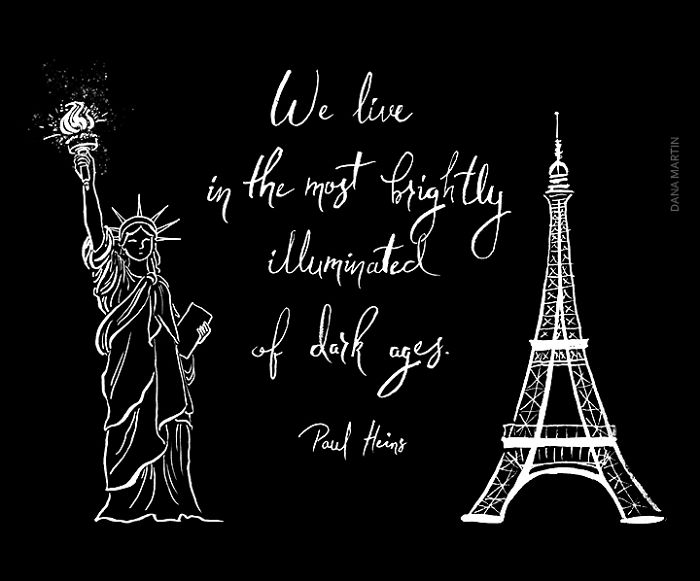 We live
in the most brightly
illuminated
of dark ages.
Paul Heins
DANA MARTIN